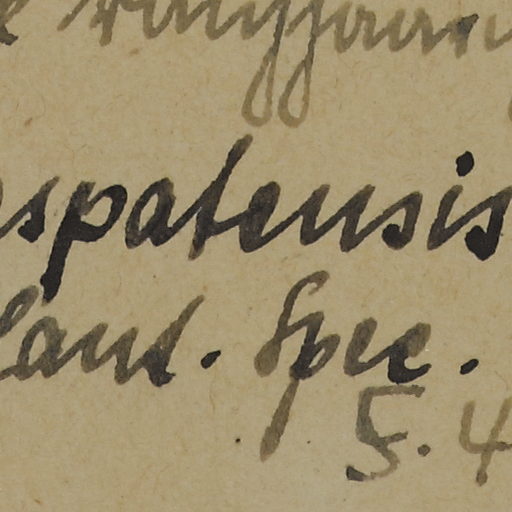 spatensis
lant. Spec.
5. 4